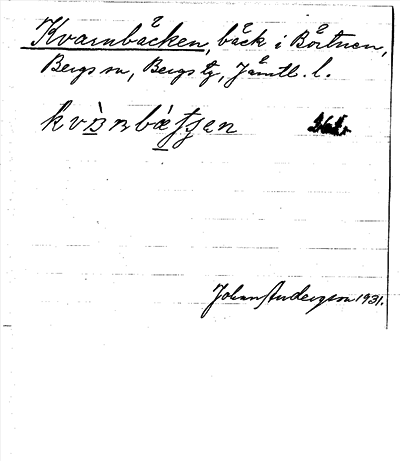 Kvarnbäcken, bäck i Börtnen,
Bergs sn, Bergs tg, Jämtl. l.
kvɒ̀nbæ̀ʃʃen
Johan Anderzson 1931.